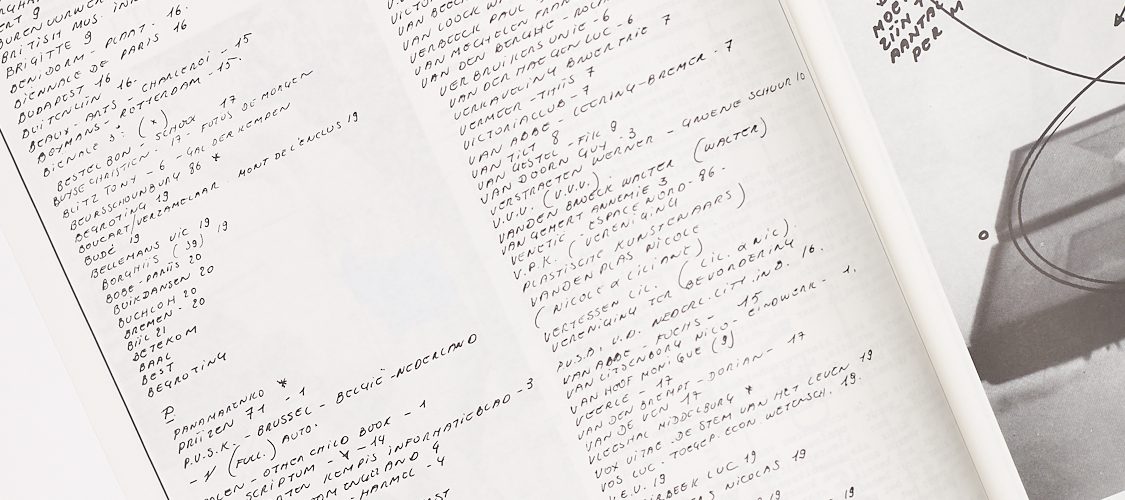 BUREN VUURWERK
BRITISH MUS. INN
BRIGITTE 9
BENIDORM - PLAAT. 16.
BIENNALE DE PARIS 16
BUDAPEST 16
BUITENLUIN 16.
BEAUX-ARTS - CHARLEROI - 15
BOYMANS - ROTTERDAM - 15.
BIENALE 3: (x)
BESTELBON - SCHOOX 17
BUYSE CHRISTIEN. 17 - FUTUS DE MORGEN
BLITZ TONY - 6 - GAL DER KEMPEN
BEURSSCHOUWBURG 86 *
BEGROTING 19
BOUCART/VERZAMELAAR. MONT DE L'ENCLUS 19
BUDÉ 19
BELLEMANS VIC 19
BORGHIJS (39) 19
BOBE - PARIJS 20
BUIKDANSEN 20
BUCHLOH 20
BREMEN - 20
BIJL 21
BETEKOM
BAAL
BEST
BEGROTING
P
PANAMARENKO *
PRIJZEN 71 - 1
P.V.S.K. - BRUSSEL - BELGIË - NEDERLAND
- 1 (FULL.) AUTO.
- OTHER CHILD BOOK - 1
SCRIPTUM - 14
KEMPIS INFORMATIEBLAD - 3
ENGELAND 9
HARMEL - 4
VAN LOOCK
VERBEECK PAUL
VAN MECHELEN FRAN
VAN DEN BERGHE - ROCH
VERBRUIKERS UNIE - 6
VAN DER HAEGEN LUC - 6
VERKAVELING BROERTRIE 7
VERMEER - THIJS 7
VICTORIACLUB - 7
VAN ABBE - LEERING - BREMER - 7
VAN TILT 8
VAN GESTEL - FIK 9
VAN DOORN GUY - 3
VERSTRAETEN WERNER - GROENE SCHUUR 10
V.V.V. (V.V.V.)
VANDEN BROECK WALTER (WALTER)
VAN GEMERT ANNEMIE 3
VENETIË - ESPACE NORD - 86.
V.P.K. (VERENIGING
PLASTISCHE KUNSTENAARS)
VANDENPLAS NICOLE
(NICOLE & LILIANE)
VERTESSEN LIL. (LIL. & NIC).
VERENIGING TER BEVORDERING
P.V.S.B, V.D. NEDERL. CITY. IND. 16.
VAN ABBE - FUCHS - 15
VAN UITSENBORG NICO - EINDWERK - 1.
VAN HOOF MONIQUE (9)
VEERLE - 17
VAN DEN BREMPT - DORIAN - 17
VAN DE VEN 17
VLEESHAL MIDDELBURG *
VOX VITAE - DE STEM VAN HET LEVEN 19
VOS LUC. TOEGEP. ECON. WETENSCH. 19.
V.E.V. 19
LUC 19
NICOLAS 19
MOET
ZIJN T
AANTAL M
PER